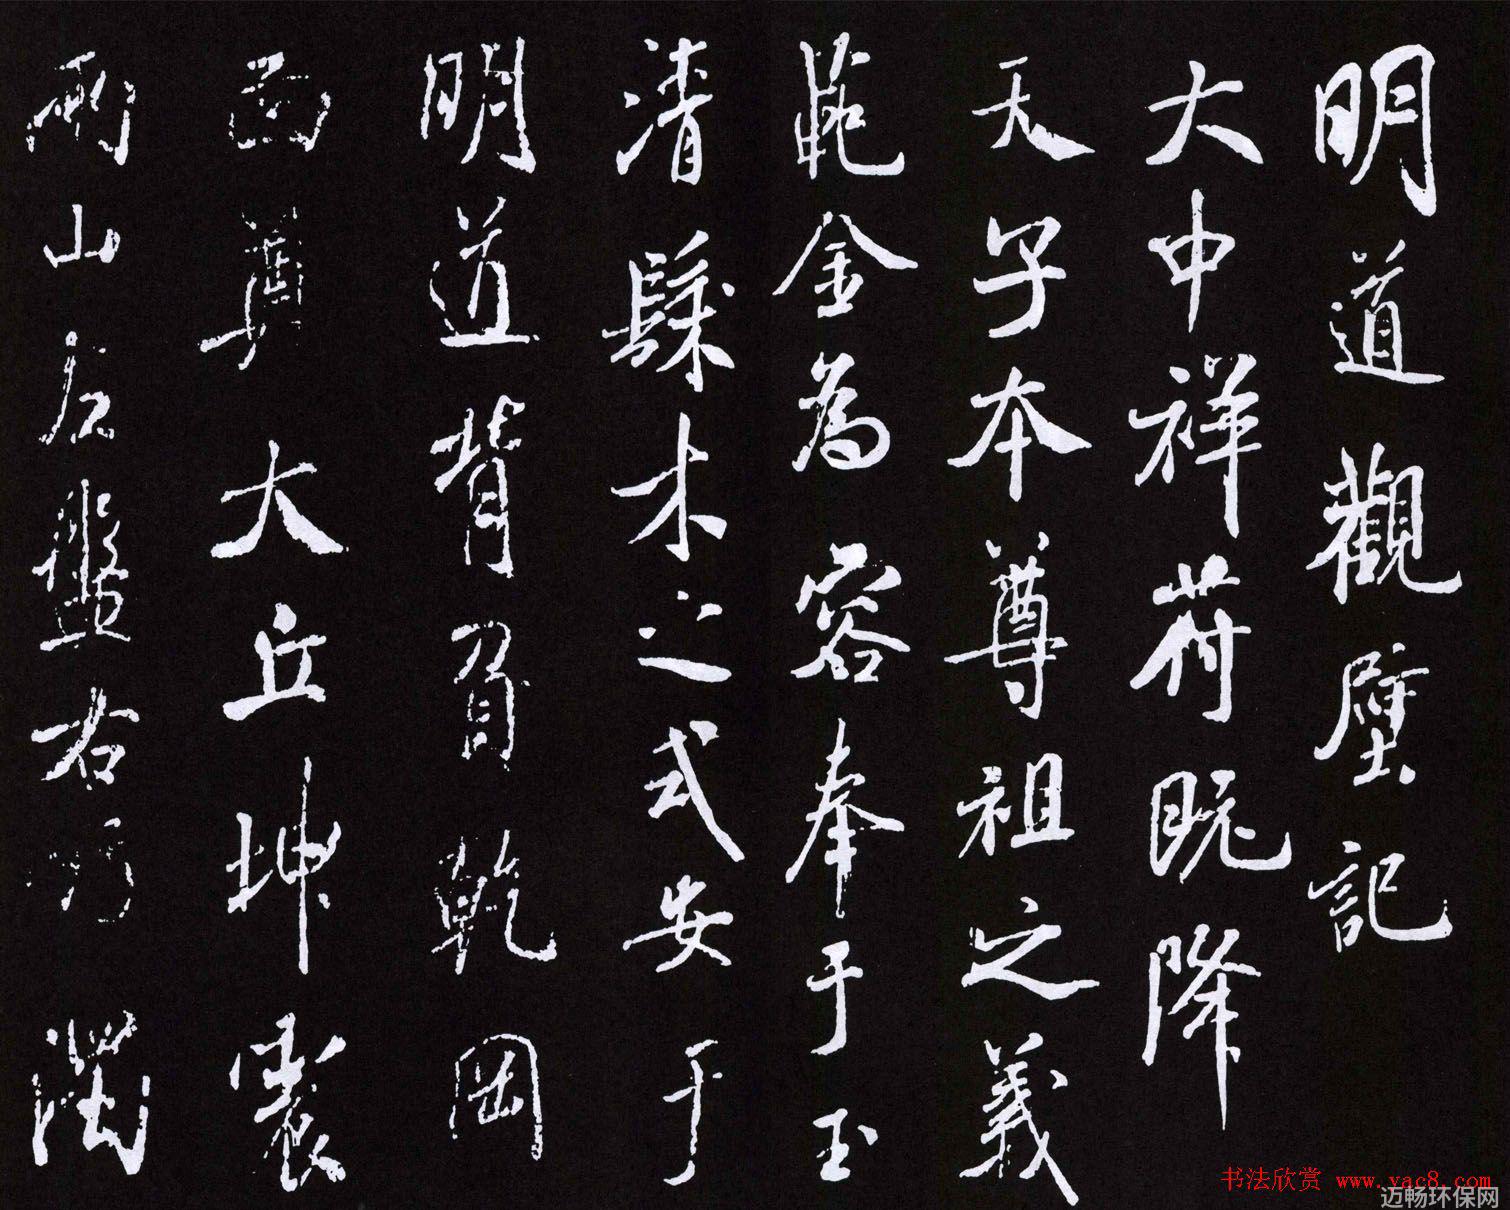 明道觀壁記
大中祥苻既降
天子本尊祖之義
範金為容奉于玉
清髹木之式安于
明道背負乾岡
西尊大丘坤
兩山左盤右
书法欣赏 www.yac8.com
迈畅环保网